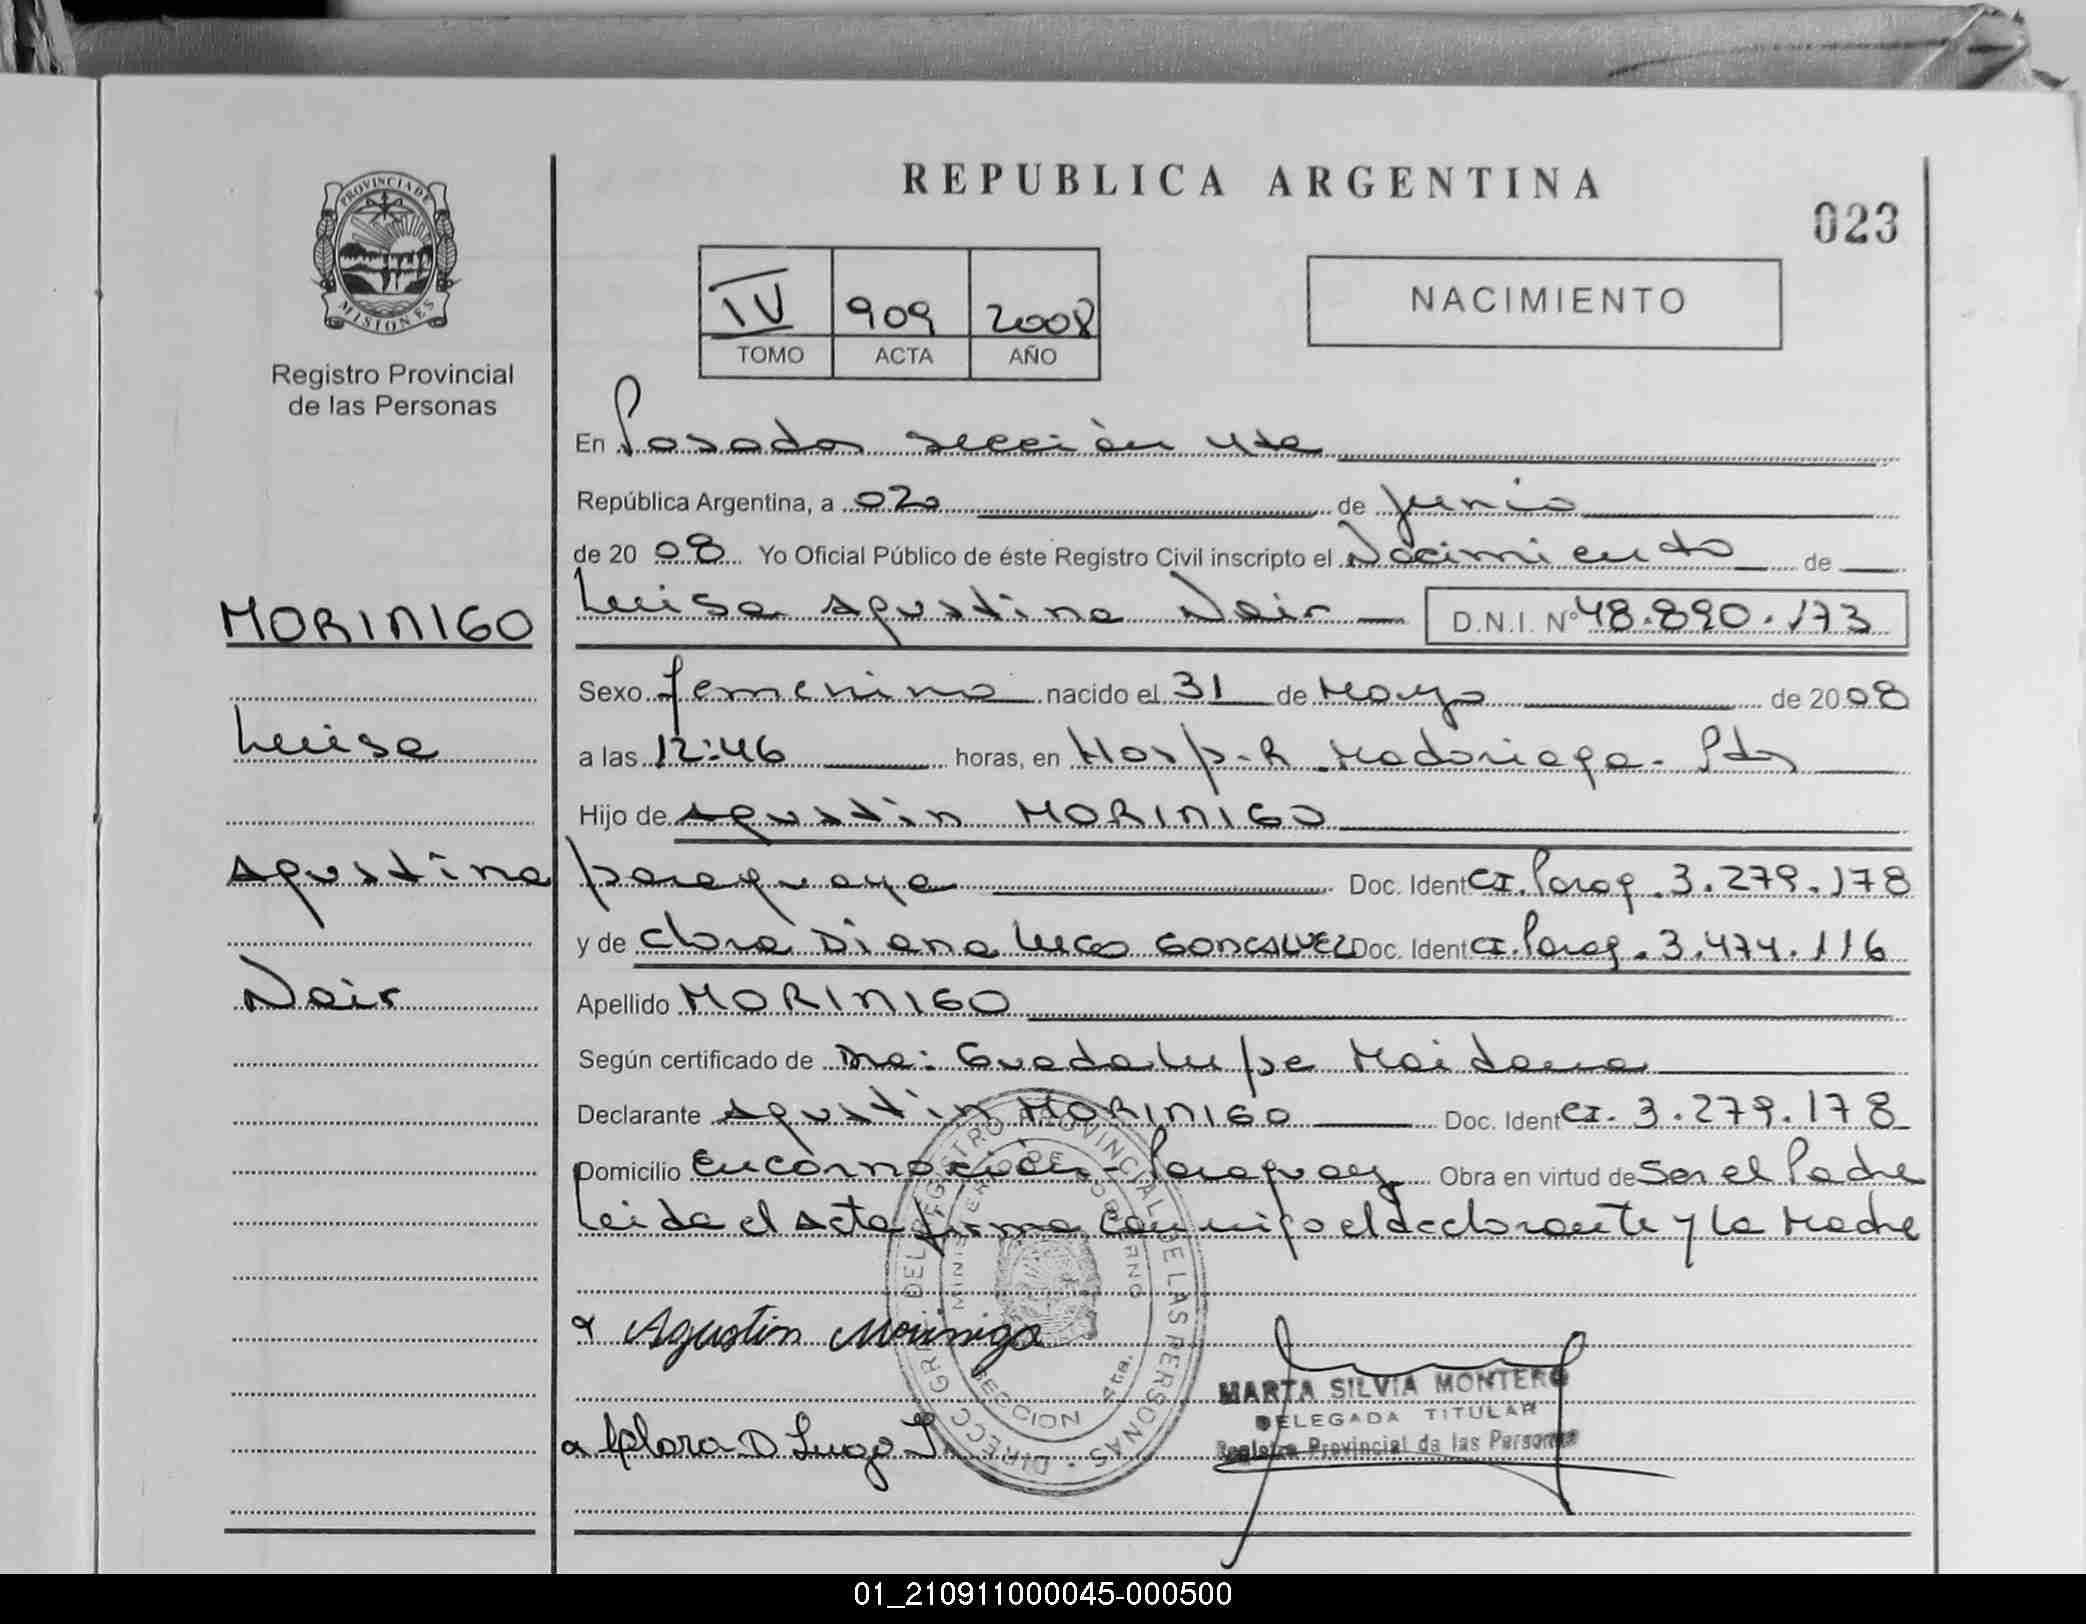 REPUBLICA ARGENTINA
023
PROVINCIA DE
MISIONES
Registro Provincial
de las Personas
IV 909 2008
TOMO ACTA AÑO
NACIMIENTO
En Posadas sección 4ta
República Argentina, a 02 de Junio
de 20 08 Yo Oficial Público de éste Registro Civil inscripto el Nacimiento de
MORINIGO
Luisa Agustina Nair D.N.I. N° 48.890.173
Sexo femenino nacido el 31 de Mayo de 20 08
Luisa
a las 12:46 horas, en Hosp. R. Madariaga - Pdas
Hijo de Agustin MORINIGO
Agustina
paraguaya Doc. Ident CI. Parag. 3.279.178
y de Clara Diana Lugo GONCALVEZ Doc. Ident CI. Parag. 3.474.116
Nair
Apellido MORINIGO
Según certificado de Dra: Guadalupe Maidana
Declarante Agustin MORINIGO Doc. Ident CI. 3.279.178
Domicilio encarnación - Paraguay Obra en virtud de Ser el Padre
Leida el Acta firma conmigo el declarante y la Madre
DIRECC GRAL DEL REGISTRO PROVINCIAL DE LAS PERSONAS
MINISTERIO DE GOBIERNO
SECCION 4ta.
Agustin Morinigo
MARTA SILVIA MONTERO
DELEGADA TITULAR
Registro Provincial de las Personas
Clara D Lugo
01_210911000045-000500